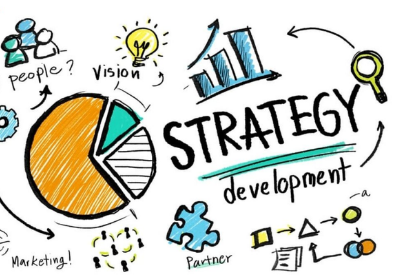 people?
Vision
STRATEGY
development
a
Marketing!
Partner